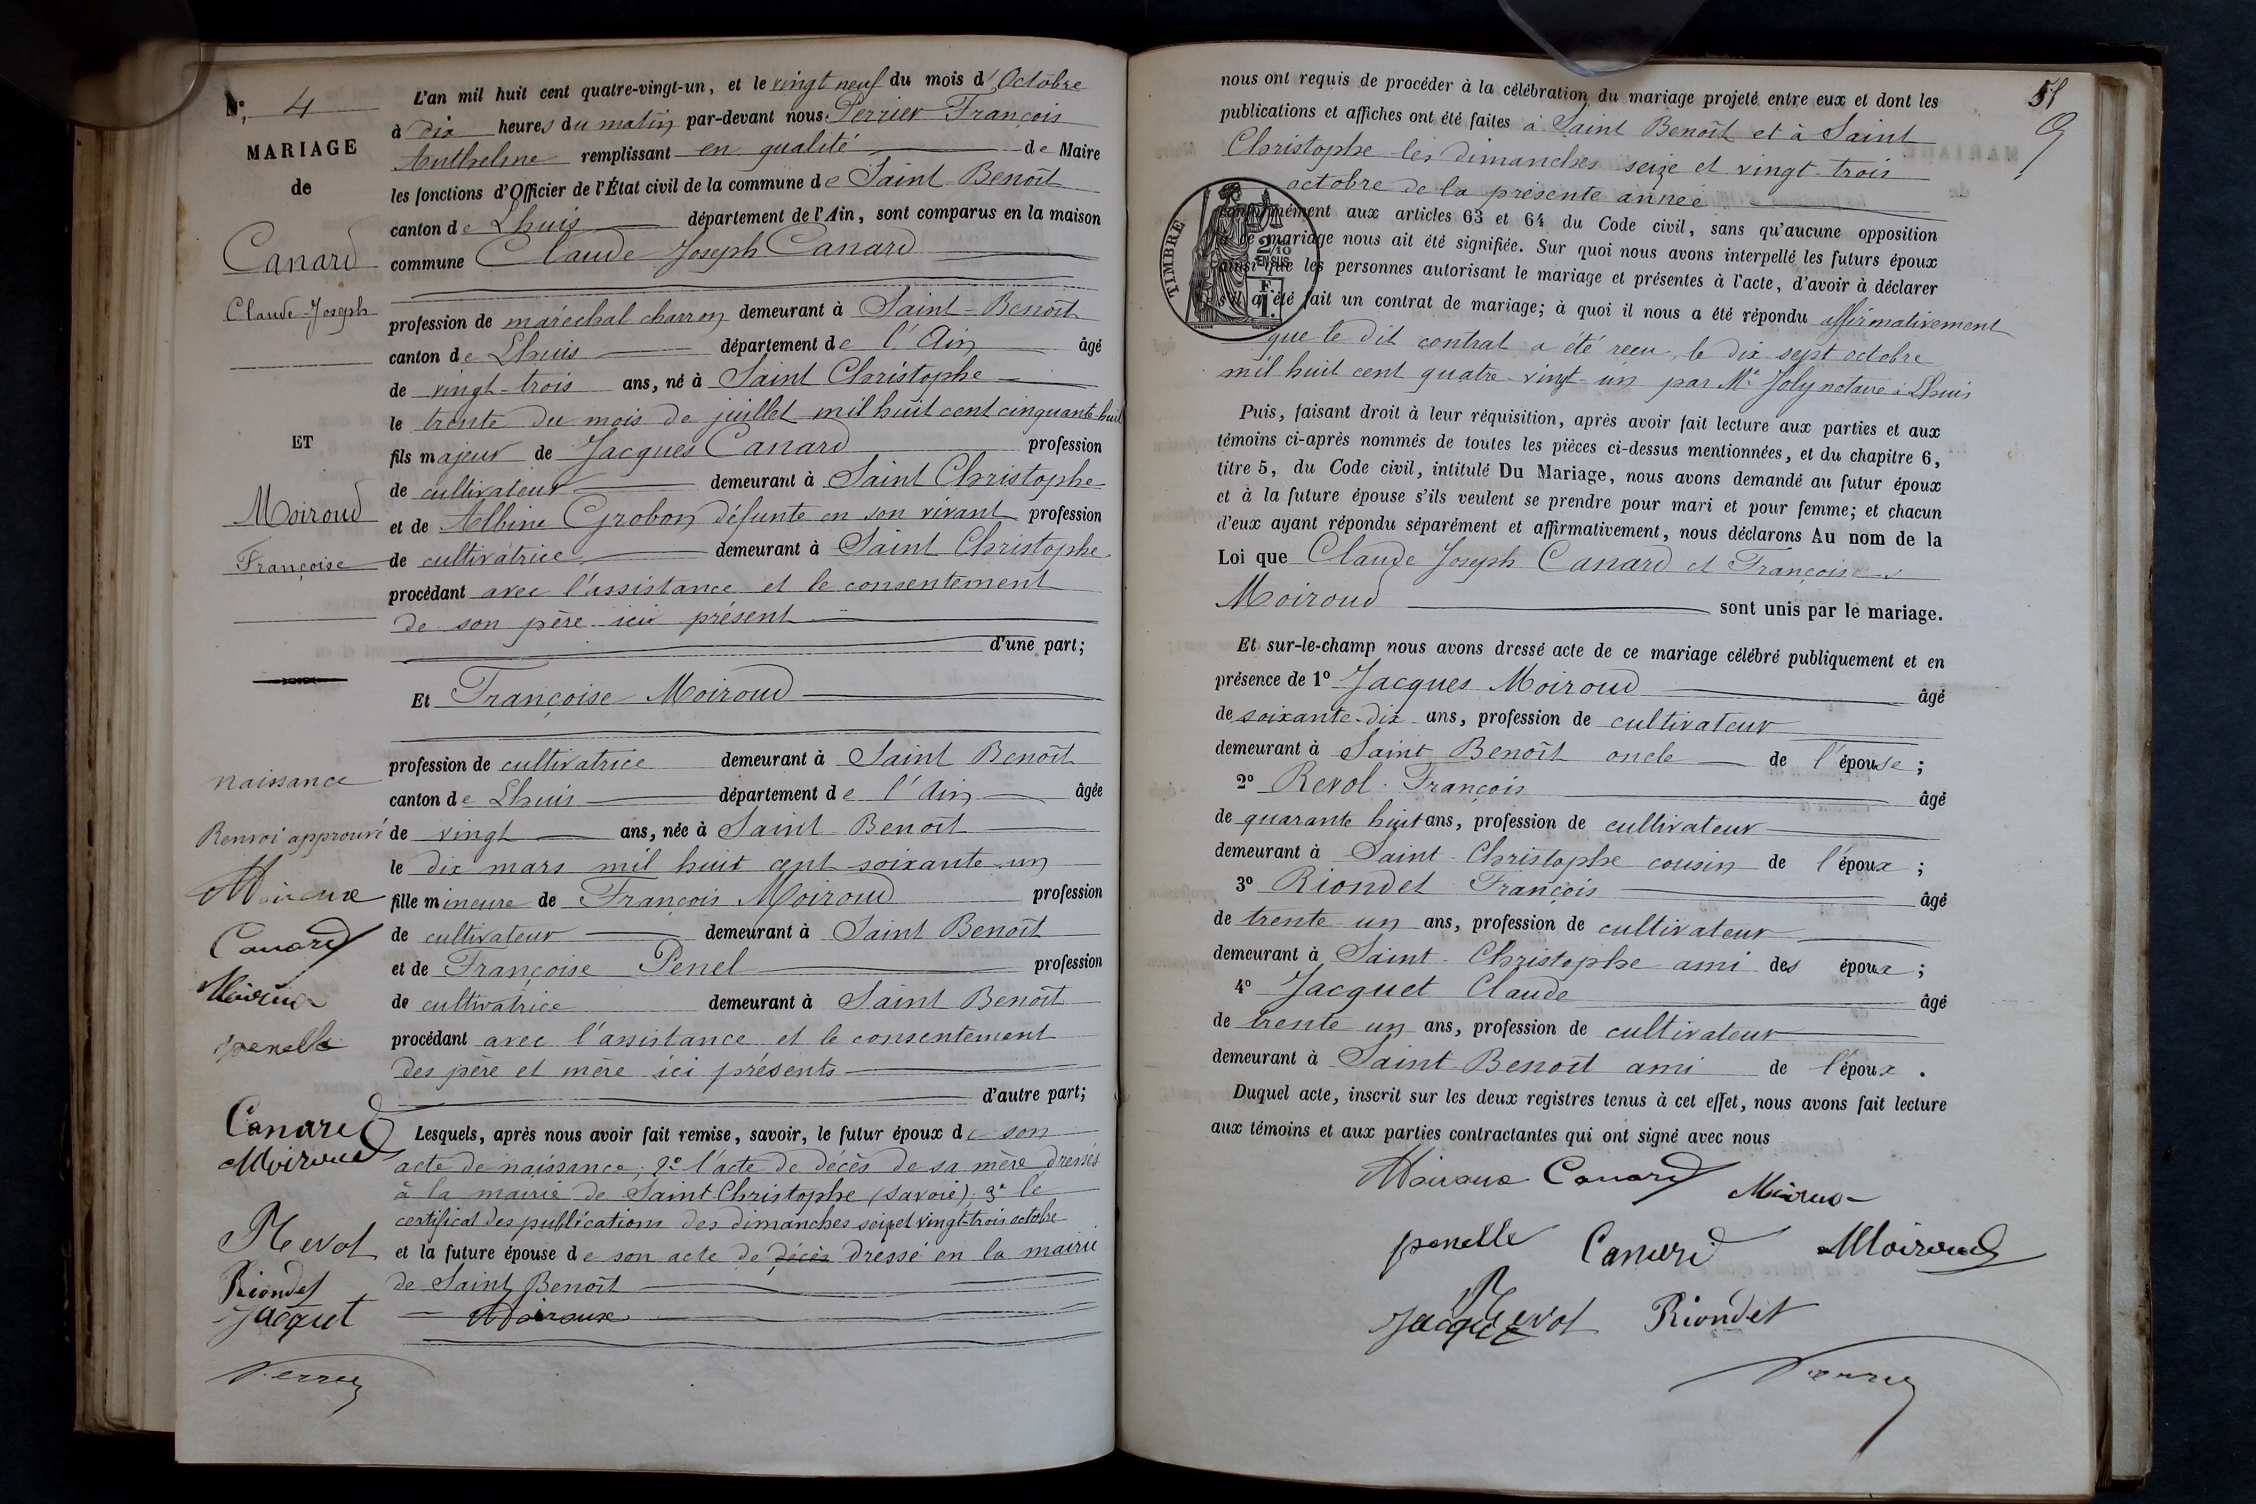 N°, 4
MARIAGE
de
Canard
Claude-Joseph
ET
Moiroud
Françoise
naissance
Renvoi approuvé
Canard
penelle
Canard
Moiroud
Revol
Riondet
Jacquet
L'an mil huit cent quatre-vingt-un, et le vingt neuf du mois d'Octobre
à dix heures du matin par-devant nous Perrier François
Anthelme remplissant en qualité de Maire
les fonctions d'Officier de l'État civil de la commune de Saint Benoît
canton de Lhuis département de l'Ain, sont comparus en la maison
commune Claude Joseph Canard
profession de maréchal charron demeurant à Saint-Benoît
canton de Lhuis département de l'Ain âgé
de vingt-trois ans, né à Saint Christophe
le trente du mois de juillet mil huit cent cinquante-huit
fils majeur de Jacques Canard profession
de cultivateur demeurant à Saint Christophe
et de Albine Grobon défunte en son vivant profession
de cultivatrice demeurant à Saint Christophe
procédant avec l'assistance et le consentement
de son père ici présent
d'une part;
Et Françoise Moiroud
profession de cultivatrice demeurant à Saint Benoît
canton de Lhuis département de l'Ain âgée
de vingt ans, née à Saint Benoît
le dix mars mil huit cent soixante-un
fille mineure de François Moiroud profession
de cultivateur demeurant à Saint Benoît
et de Françoise Penel profession
de cultivatrice demeurant à Saint Benoît
procédant avec l'assistance et le consentement
des père et mère ici présents
d'autre part;
Lesquels, après nous avoir fait remise, savoir, le futur époux de son
acte de naissance; 2° l'acte de décès de sa mère dressés
à la mairie de Saint-Christophe (Savoie); 3° le
certificat des publications des dimanches seize et vingt-trois octobre
et la future épouse de son acte de décès dressé en la mairie
de Saint Benoît
58
nous ont requis de procéder à la célébration du mariage projeté entre eux et dont les
publications et affiches ont été faites à Saint Benoît et à Saint
Christophe les dimanches seize et vingt-trois
octobre de la présente année
TIMBRE
2/10
EN SUS
F.
1.
conformément aux articles 63 et 64 du Code civil, sans qu'aucune opposition
à ce mariage nous ait été signifiée. Sur quoi nous avons interpellé les futurs époux
ainsi que les personnes autorisant le mariage et présentes à l'acte, d'avoir à déclarer
s'il a été fait un contrat de mariage; à quoi il nous a été répondu affirmativement
que le dit contrat a été reçu, le dix sept octobre
mil huit cent quatre-vingt-un par Me Joly notaire à Lhuis
Puis, faisant droit à leur réquisition, après avoir fait lecture aux parties et aux
témoins ci-après nommés de toutes les pièces ci-dessus mentionnées, et du chapitre 6,
titre 5, du Code civil, intitulé Du Mariage, nous avons demandé au futur époux
et à la future épouse s'ils veulent se prendre pour mari et pour femme; et chacun
d'eux ayant répondu séparément et affirmativement, nous déclarons Au nom de la
Loi que Claude Joseph Canard et Françoise
Moiroud sont unis par le mariage.
Et sur-le-champ nous avons dressé acte de ce mariage célébré publiquement et en
présence de 1° Jacques Moiroud âgé
de soixante-dix ans, profession de cultivateur
demeurant à Saint Benoît oncle de l'épouse;
2° Revol François âgé
de quarante huit ans, profession de cultivateur
demeurant à Saint-Christophe cousin de l'époux;
3° Riondet François âgé
de trente un ans, profession de cultivateur
demeurant à Saint-Christophe ami des époux;
4° Jacquet Claude âgé
de trente un ans, profession de cultivateur
demeurant à Saint-Benoît ami de l'époux.
Duquel acte, inscrit sur les deux registres tenus à cet effet, nous avons fait lecture
aux témoins et aux parties contractantes qui ont signé avec nous
Canard
penelle Canard Moiroud
Jacquet Revol Riondet